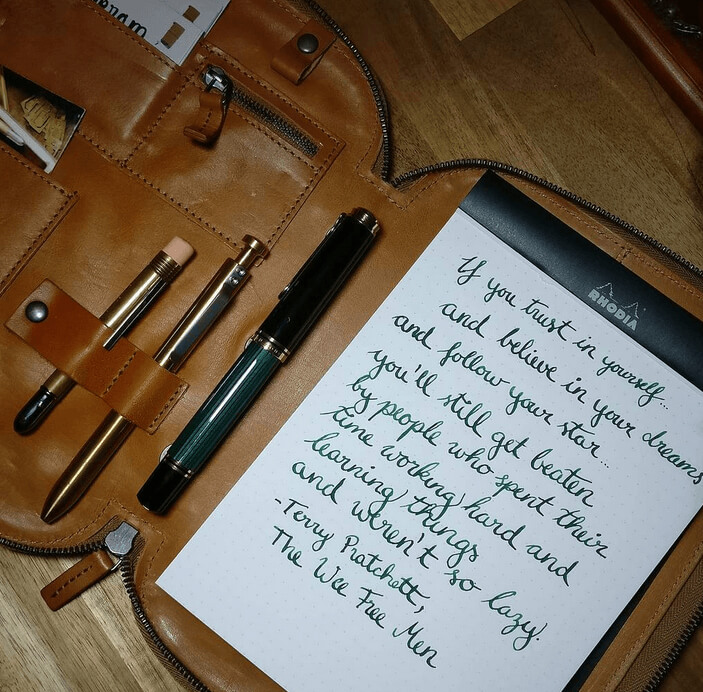 RHODIA
If you trust in yourself...
and believe in your dreams
and follow your star...
you'll still get beaten
by people who spent their
time working hard and
learning things
and weren't so lazy!
-Terry Pratchett,
The Wee Free Men